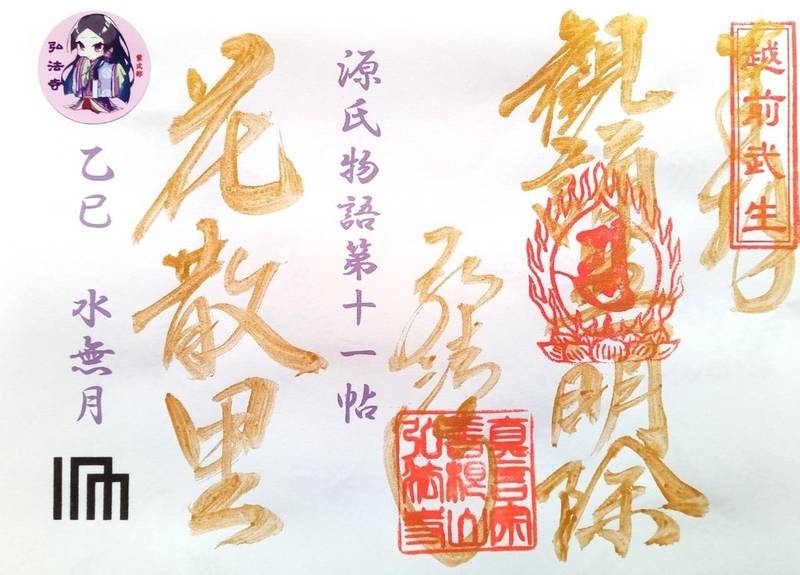 奉拝
越前武生
明除
弘法寺
真言宗
善根山
弘法寺
源氏物語第十一帖
花散里
紫式部
弘法寺
乙巳 水無月